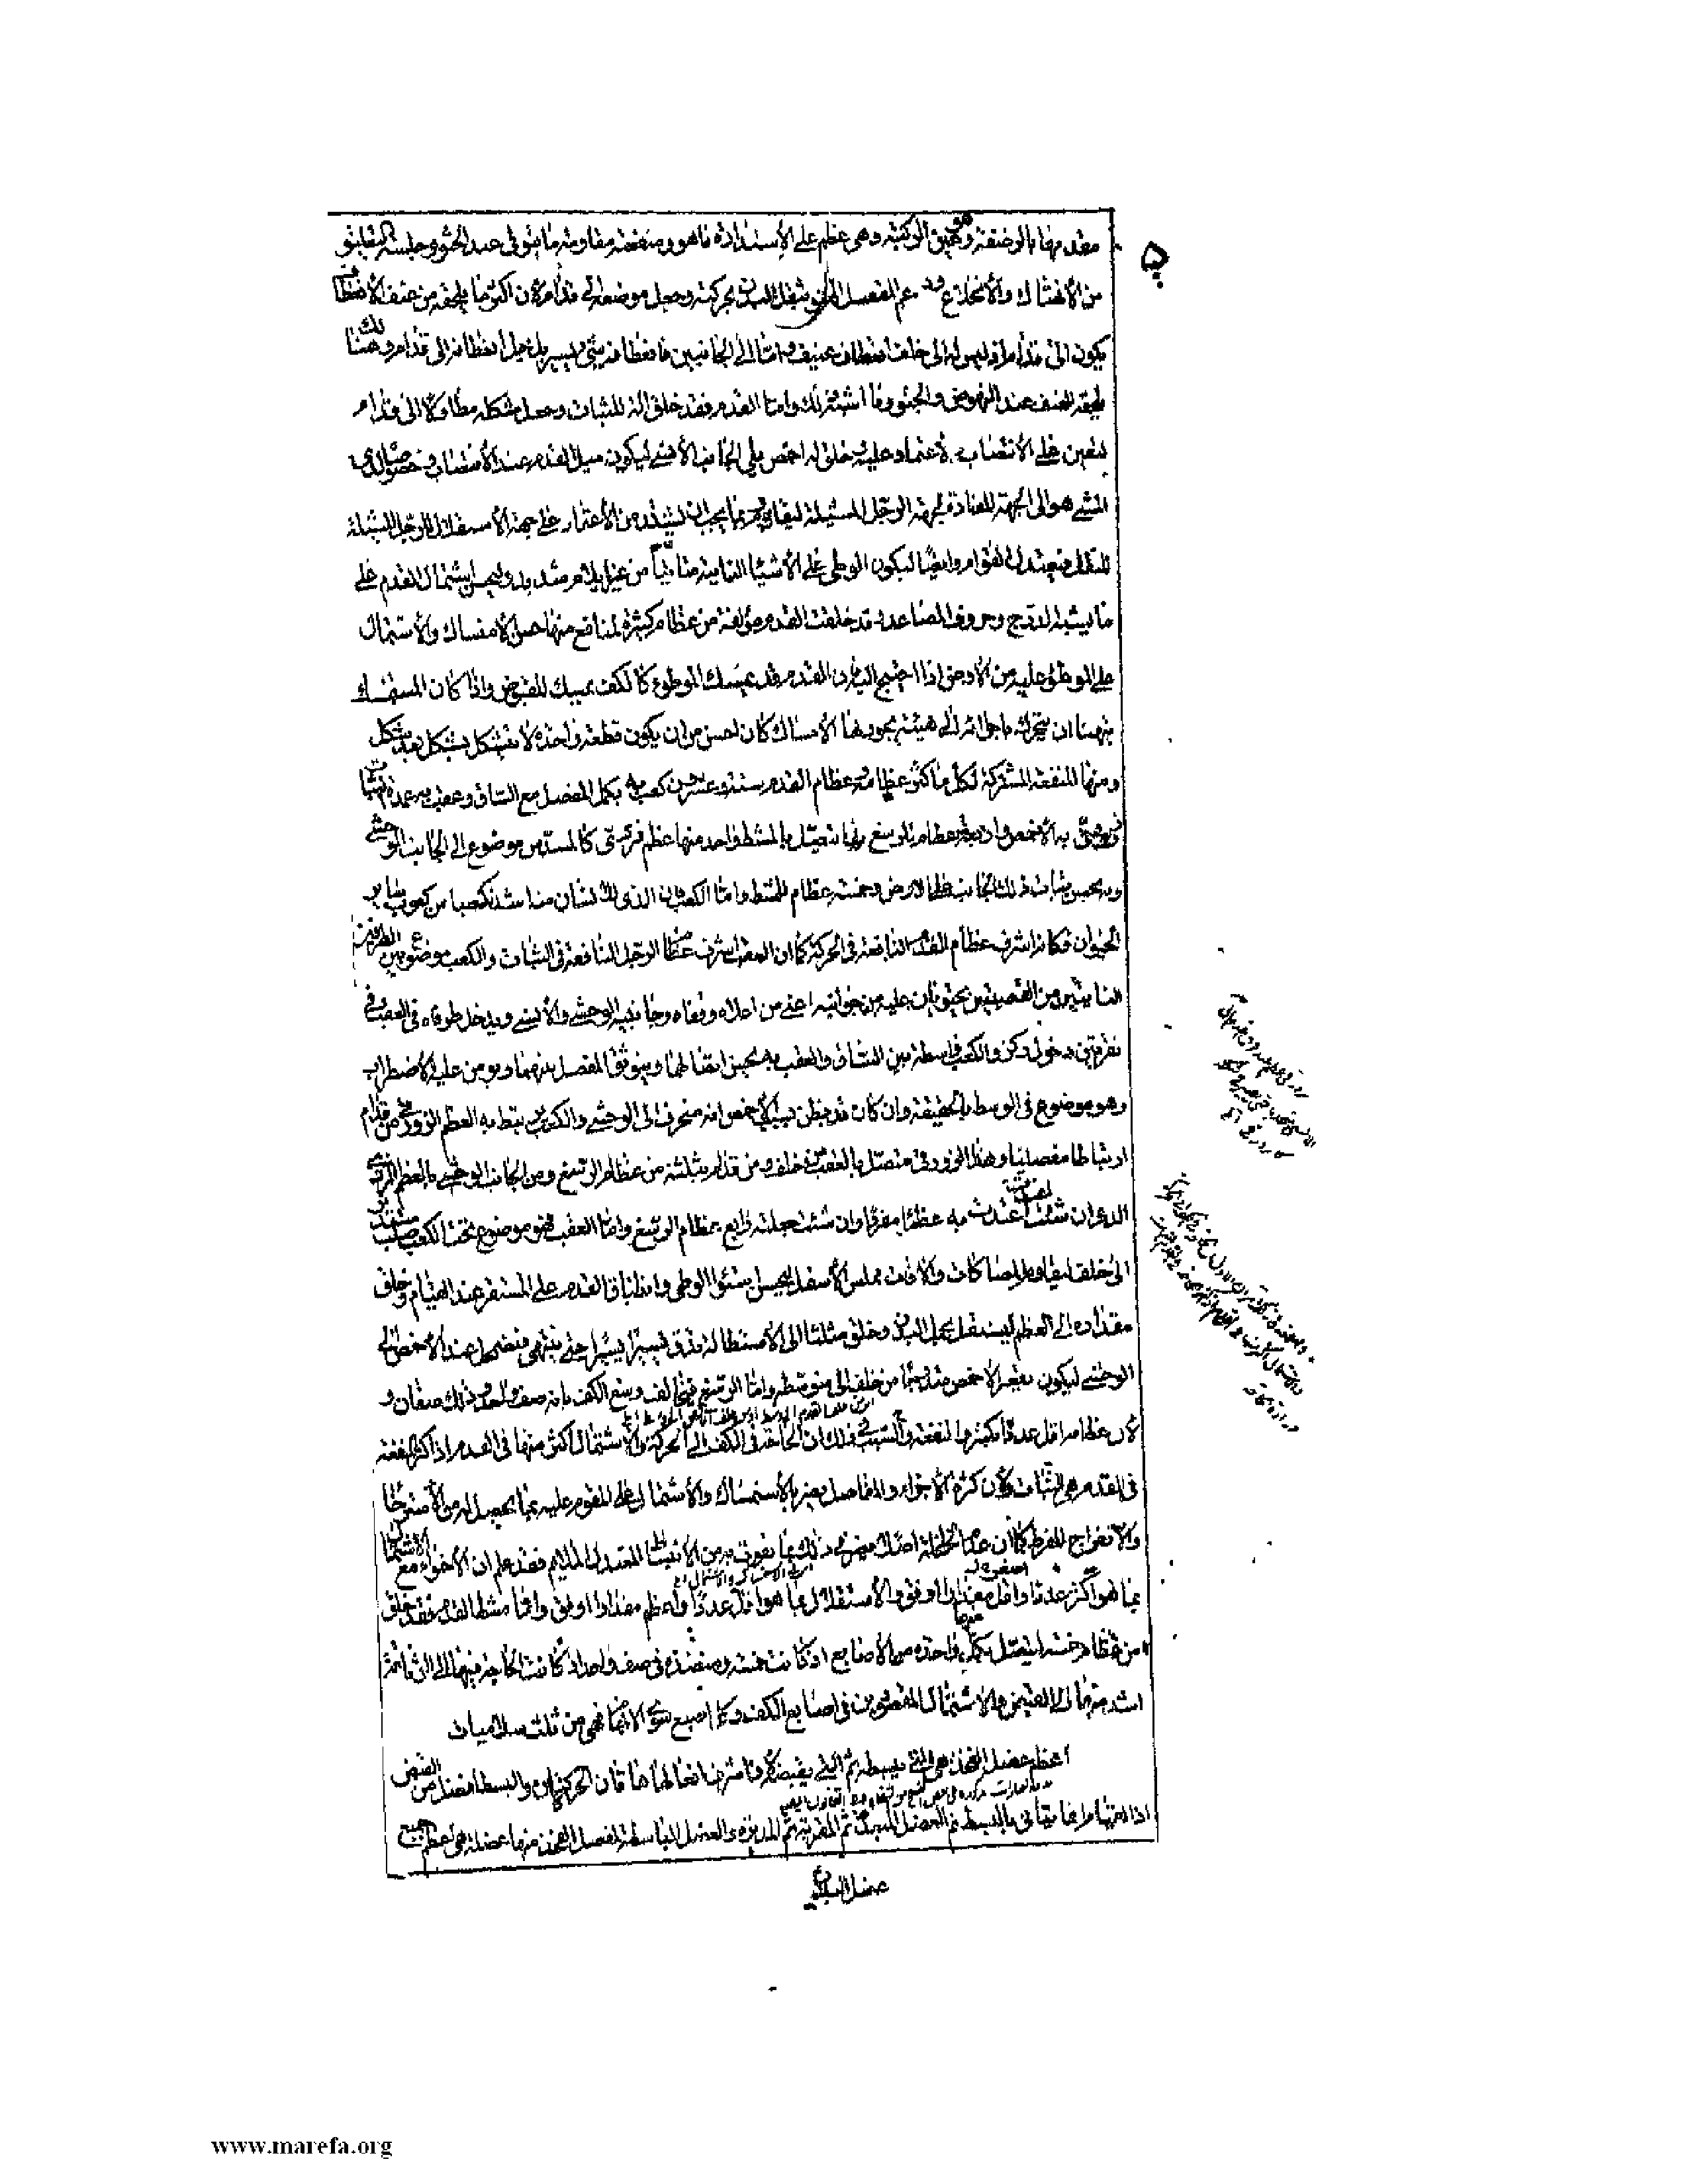 مقدمهما بالرضفة وهو عين الركبة وهى عظم على الاستدارة ما هو ومنفعته مقاومة ما يتوقى عند الجثو وجلسة التعلق
من الانهتاك والانخلاع ودعم المفصل الممنو بثقل البدن بحركته وجعل موضعه الى قدام لان اكثر ما يلحقه من عنف الانعطاف
يكون الى قدام اذ ليس له الى خلف انعطاف عنيف واما الى الجانبين فانعطافه شئ يسير بل جعل انعطافه الى قدام وهناك
يلحقه العنف عند النهوض والجثو وما اشبه ذلك واما القدم فقد خلق الة للثبات وجعل شكله مطاولا الى قدام
ليعين على الانتصاب بالاعتماد عليه وخلق له اخمص يلى الجانب الانسى ليكون ميل القدم عند الانتصاب وخصوصا لدى
المشى هو الى الجهة المضادة لجهة الرجل المشيلة ليقاوم بما يجب ان يشتد من الاعتماد على جهة الاستقلال الرجل المشيلة
للنقل فيعتدل القوام وايضا ليكون الوطى على الاشياء النابتة متاتيا من غير ايلام شديد وليحسن اشتمال القدم على
ما يشبه الدرج وحروف المصاعد وقد خلقت القدم مؤلفة من عظام كثيرة لمنافع منها حسن الامساك والاشتمال
على الموطوء عليه من الارض اذا احتيج اليه فان القدم قد يمسك الموطوء كالكف يمسك المقبوض واذا كان المستمسك
يتهيا ان يتحرك باجزائه الى هيئة يجود بها الامساك كان احسن من ان يكون قطعة واحدة لا يتشكل بشكل بعد شكل
ومنها المنفعة المشتركة لكل ما كثر عظامه وعظام القدم ستة وعشرون كعب به يكمل المفصل مع الساق وعقب به عمدة الثبات
وزورقى به الاخمص واربعة عظام للرسغ بها يتصل بالمشط وواحد منها عظم نردى كالمسدس موضوع الى الجانب الوحشى
وبه يحسن ثبات ذلك الجانب على الارض وخمسة عظام للمشط واما الكعب فان الذى للانسان منه اشد تكعيبا من كعوب ساير
الحيوان فكانه اشرف عظام القدم النافعة فى الحركة كما ان العقب اشرف عظام الرجل النافعة فى الثبات والكعب موضوع بين الطرفين
الناتئين من القصبتين يحتويان عليه من جوانبه اعنى من اعلاه وقفاه وجانبيه الوحشى والانسى ويدخل طرفاه فى العقب فى
نقرتين دخول ركز والكعب واسطة بين الساق والعقب به يحسن اتصالهما ويتوثق المفصل بينهما ويؤمن عليه الاضطراب
وهو موضوع فى الوسط بالحقيقة وان كان قد يظن بسبب الاخمص انه منحرف الى الوحشى والكعب يرتبط به العظم الزورقى من قدام
ارتباطا مفصليا وهذا الزورقى متصل بالعقب من خلف ومن قدام بثلثة من عظام الرسغ ومن الجانب الوحشى بالعظم النردى
الذى ان شئت اعتددت به عظما مفردا وان شئت جعلته رابع عظام الرسغ واما العقب فهو موضوع تحت الكعب صلب مستدير
الى خلف ليقاوم المصاكات والافات مملس الاسفل ليحسن استواء الوطى وانطباق القدم على المستقر عند القيام وخلق
مقداره الى العظم ليستقل بحمل البدن وخلق مثلثا الى الاستطالة يدق يسيرا يسيرا حتى ينتهى فيضمحل عند الاخمص الى
الوحشى ليكون تقعير الاخمص متدرجا من خلف الى متوسطه واما الرسغ فيخالف رسغ الكف بانه صف واحد وذلك صفان و
لان عظامه اقل عددا بكثير والمنفعة والسبب فى ذلك ان الحاجة فى الكف الى الحركة والاشتمال اكثر منها فى القدم اذ اكثر المنفعة
فى القدم هى الثبات ولان كثرة الاجزاء والمفاصل يضر بالاستمساك والاشتمال على المقوم عليه بما يحصل له من الاسترخاء
والانفراج المفرط كما ان عدم الخلخلة اصلا يضر فى ذلك بما يفوت به من الانبساط المعتدل الملايم فقد علم ان الاحتواء مع الاشتمال
بما هو اكثر عددا واقل مقدارا اوفق والاستقلال بما هو اقل عددا واعظم مقدارا اوفق واما مشط القدم فقد خلق
من عظام خمسة ليتصل بكل واحدة منها واحد من الاصابع اذ كانت خمسة منضدة فى صف واحد اذ كانت الحاجة فيها الى الوثاقة
اشد منها الى القبض والاشتمال المقصودين فى اصابع الكف وكل اصبع سوى الابهام فهى من ثلث سلاميات
اعظم عضل الفخذ هى التى يبسطه ثم التى يقبضه لان اشرف افعالها هاتان الحركتان والبسط افضل من القبض
اذ القيام انما يتاتى بالبسط ثم العضل المبعدة ثم المقربة ثم المديرة والعضل الباسطة لمفصل الفخذ منها عضلة هى اعظم جميع
عضل البدن
www.marefa.org